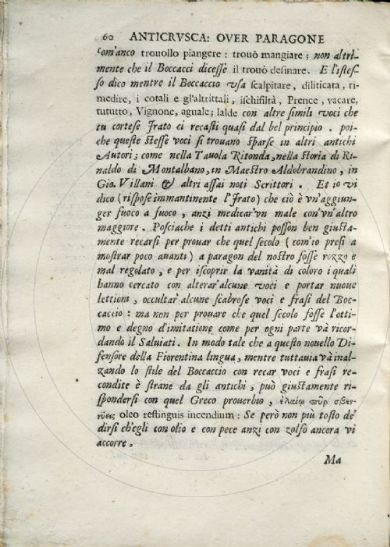 60 ANTICRVSCA: OVER PARAGONE
com'anco trouollo piangere: trouò mangiare; non altri-
mente che il Boccacci dicesse il trouò desinare. E l'istes-
so dico mentre il Boccaccio vsa scalpitare, diliticata, ri-
medire, i cotali e gl'altrittali, ischifiltà, Prence, vacare,
tututto, Vignone, aguale; laldè con altre simili voci che
tu cortese frate ci recasti quasi dal bel principio. poi-
che queste stesse voci si trouano sparse in altri antichi
Autori; come nella Tauola Ritonda, nella storia di Ri-
naldo di Montalbano, in Maestro Aldobrandino, in
Gio. Villani & altri assai noti Scrittori. Et io vi
dico (rispose immantinente l'frate) che ciò è vn'aggiun-
ger fuoco a fuoco, anzi medicar vn male con vn'altro
maggiore. Posciache i detti antichi posson ben giusta-
mente recarsi per prouar che quel secolo (com'io presi a
mostrar poco auanti) a paragon del nostro fosse rozzo e
mal regolato, e per iscoprir la vanità di coloro i quali
hanno cercato con alterar'alcune voci e portar nuoue
lettioni, occultar'alcune scabrose voci e frasi del Boc-
caccio: ma non per prouare che quel secolo fosse l'otti-
mo e degno d'imitatione come per ogni parte và ricor-
dando il Saluiati. In modo tale che a questo nouello Di-
fensore della Fiorentina lingua, mentre tuttauia và inal-
zando lo stile del Boccaccio con recar voci e frasi re-
condite è strane da gli antichi, può giustamente ri-
spondersi con quel Greco prouerbio, ἐλαίῳ πῦρ σβεν-
νύεις oleo restinguis incendium: Se però non più tosto de
dirsi ch'egli con olio e con pece anzi con zolfo ancora vi
accorre.
Ma